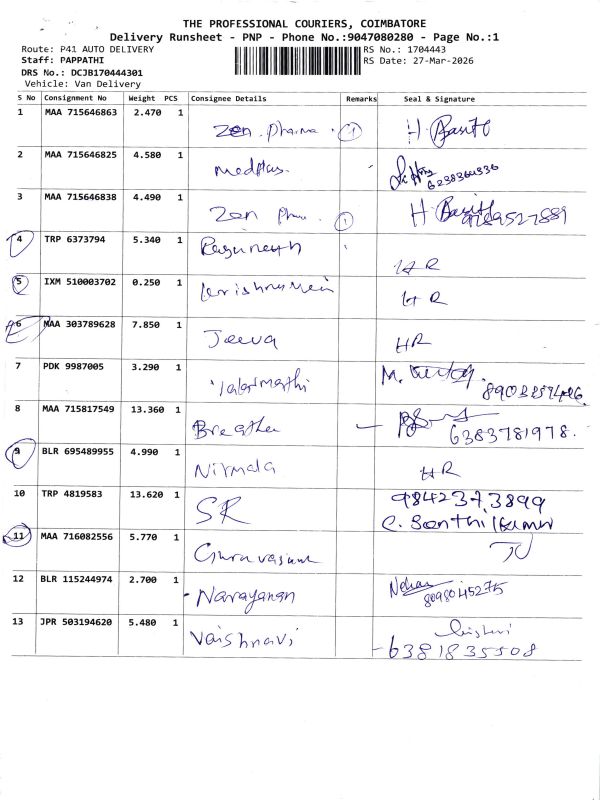 THE PROFESSIONAL COURIERS, COIMBATORE
Delivery Runsheet - PNP - Phone No.:9047080280 - Page No.:1
Route: P41 AUTO DELIVERY
RS No.: 1704443
Staff: PAPPATHI
RS Date: 27-Mar-2026
DRS No.: DCJB170444301
Vehicle: Van Delivery
S No Consignment No Weight PCS Consignee Details Remarks Seal & Signature
1 MAA 715646863 2.470 1 Zen Pharma 1 H.
2 MAA 715646825 4.580 1 Medplus 6238364336
3 MAA 715646838 4.490 1 Zen 1 H.
4 TRP 6373794 5.340 1 HR
5 IXM 510003702 0.250 1 HR
6 MAA 303789628 7.850 1 Jeeva HR
7 PDK 9987005 3.290 1 M.
8 MAA 715817549 13.360 1 Breathe 6383781978.
9 BLR 695489955 4.990 1 Nirmala HR
10 TRP 4819583 13.620 1 SR 9842373899
C. Senthilkumar
11 MAA 716082556 5.770 1
12 BLR 115244974 2.700 1 Narayanan 8098045275
13 JPR 503194620 5.480 1 Vaishnavi
6381835508